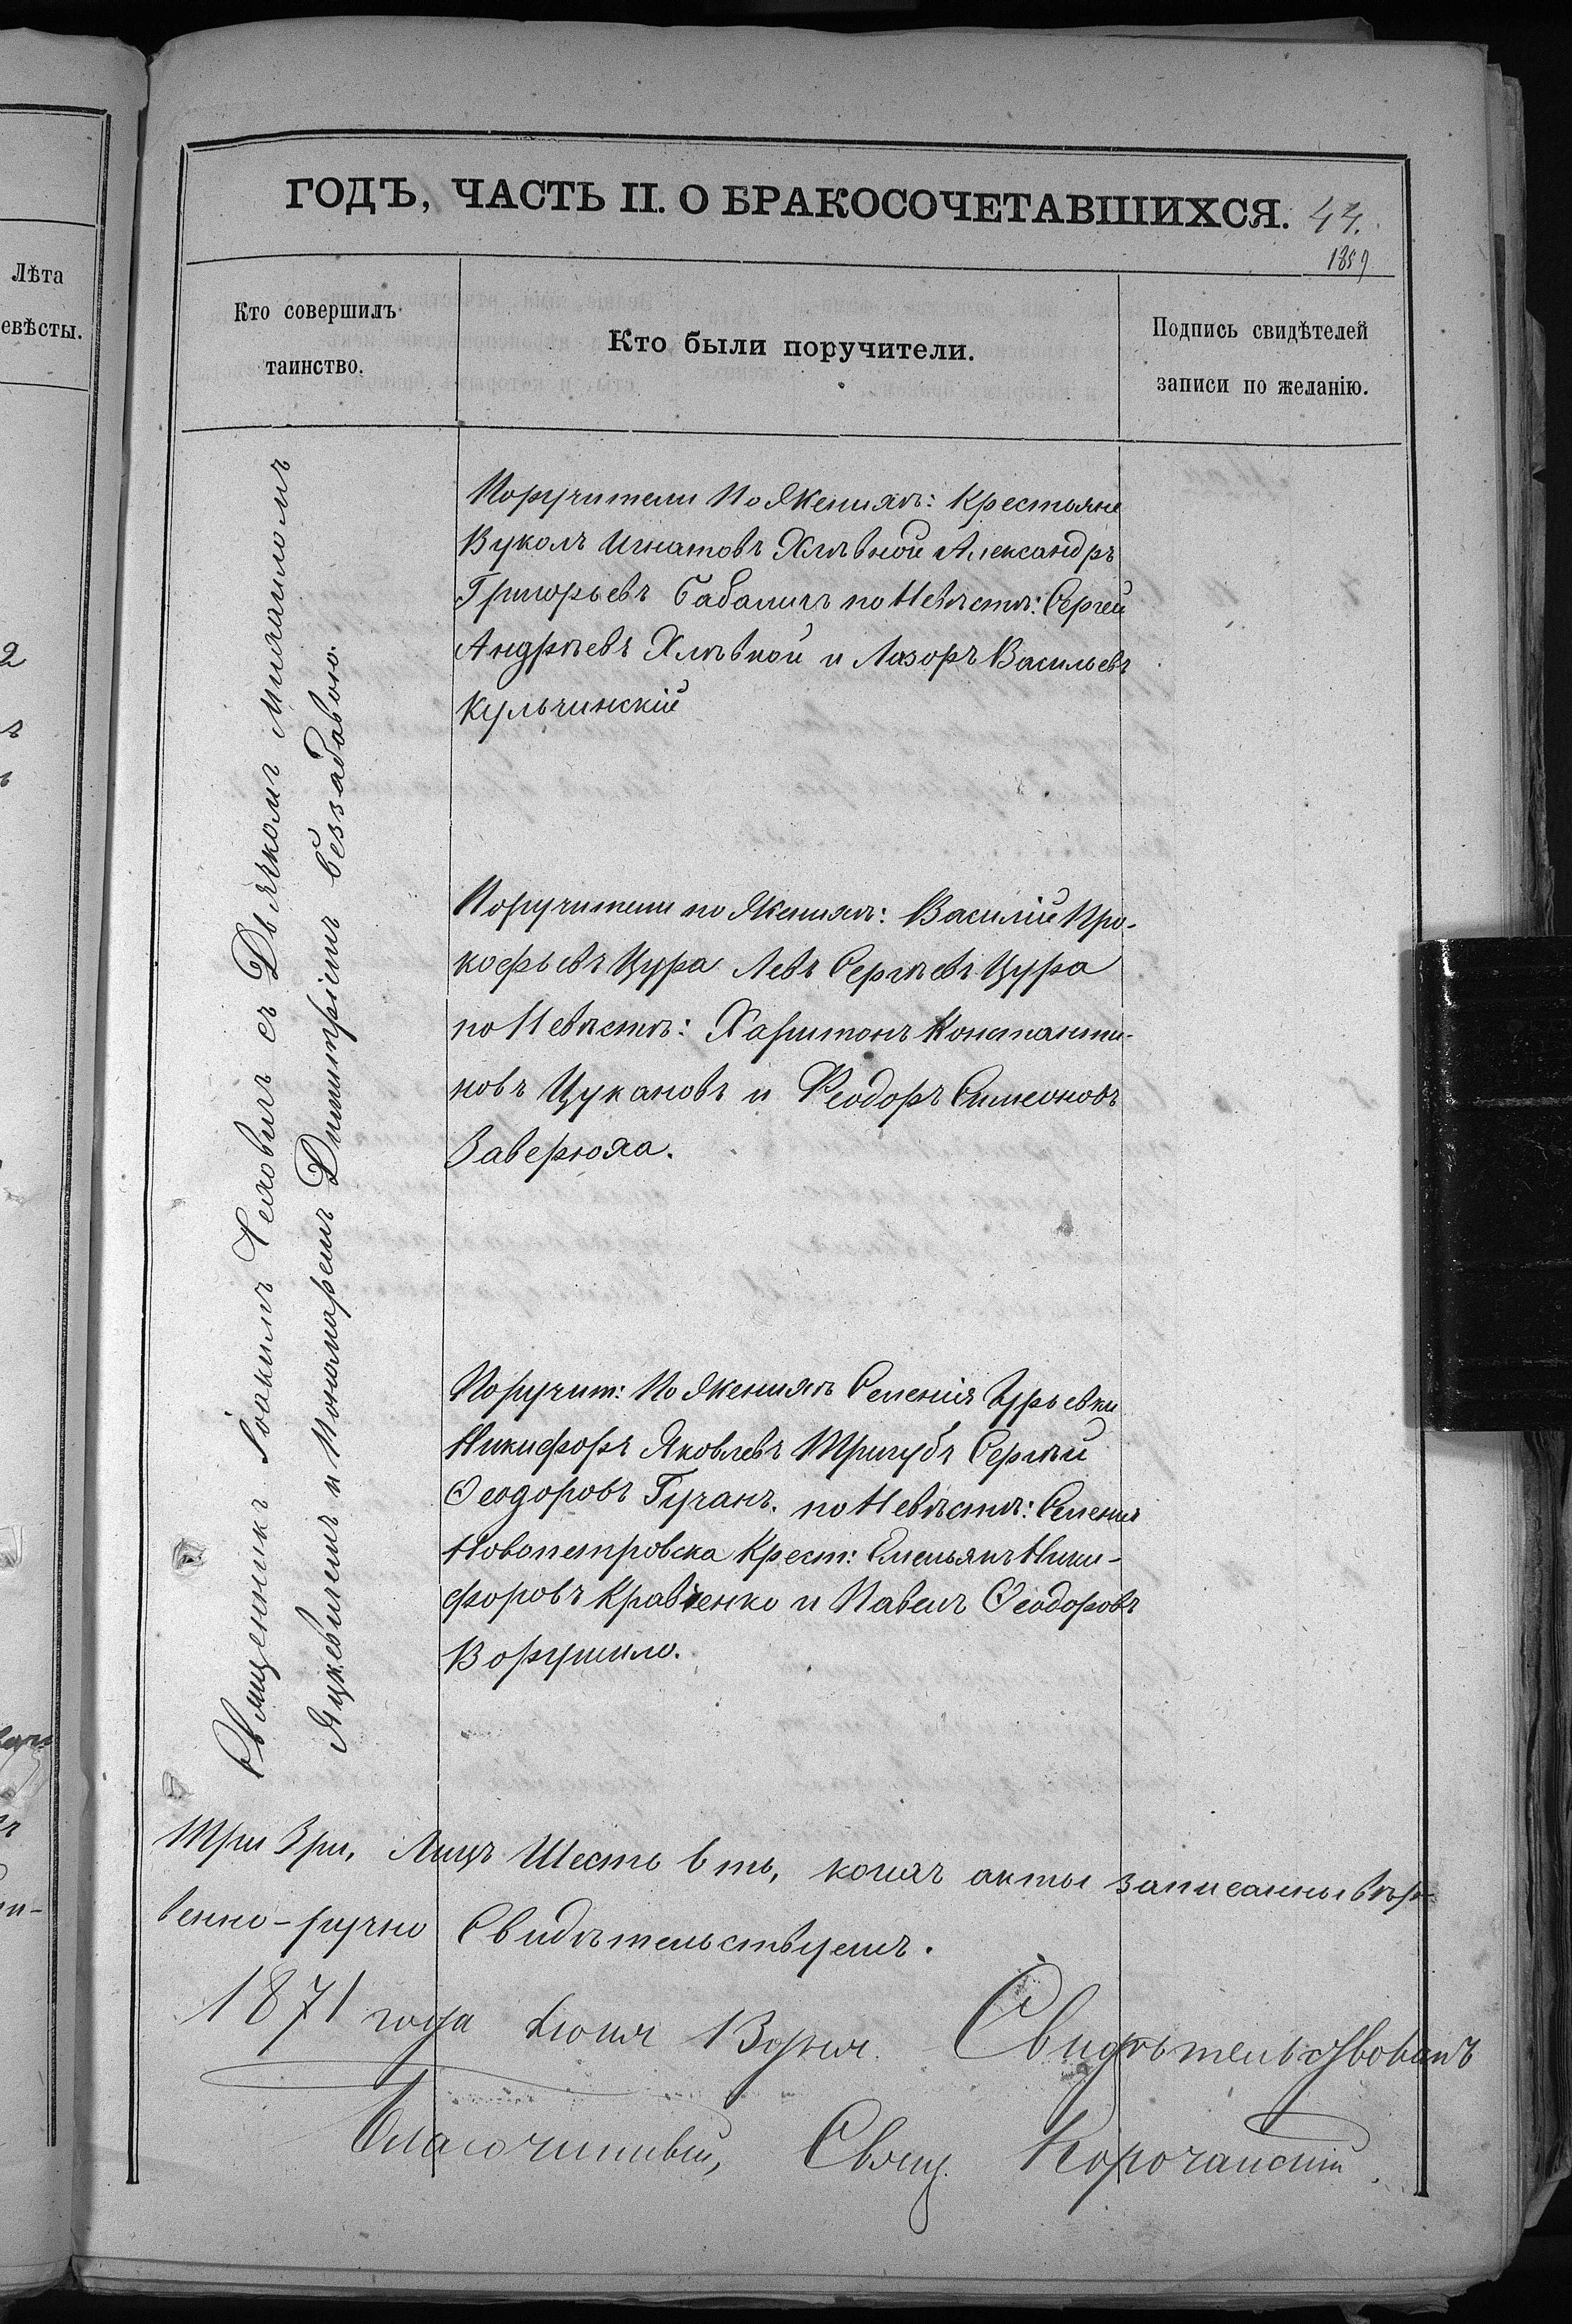 ГОДЪ, ЧАСТЬ II. О БРАКОСОЧЕТАВШИХСЯ. 44.
1859
Лѣта
евѣсты.
Кто совершилъ
таинство.
Кто были поручители.
Подпись свидѣтелей
записи по желанію.
Священникъ Іоакимъ съ Дьячкомъ Михаиломъ
Яцкевичемъ и Пономаремъ Димитріемъ
Поручители По Женихѣ: Крестьяне
Вуколъ Игнатовъ Хлѣвной Александръ
Григорьевъ Бабаничъ по Невѣстѣ: Сергей
Андрѣевъ Хлѣвной и Лазоръ Васильевъ
Кульчинскій
Поручители по Женихѣ: Василій Про-
кофьевъ Цура Левъ Сергѣевъ Цура
по Невѣстѣ: Харитонъ Константи-
новъ Цукановъ и Феодоръ Симеоновъ
Заверюха.
Поручит: По Женихѣ Селенія Гурьевки
Никифоръ Яковлевъ Тригубъ Сергѣй
Ѳеодоровъ Гучанъ. по Невѣстѣ: Селенія
Новопетровска Крест: Емельянъ Ники-
форовъ Кравченко и Павелъ Ѳеодоровъ
Ворушило.
Три Лицъ Шесть коихъ акты записанны
ручно Свидѣтельствуемъ.
1871 года Іюня Свидѣтельствовалъ
Благочинный, Свящ. Корочанскій